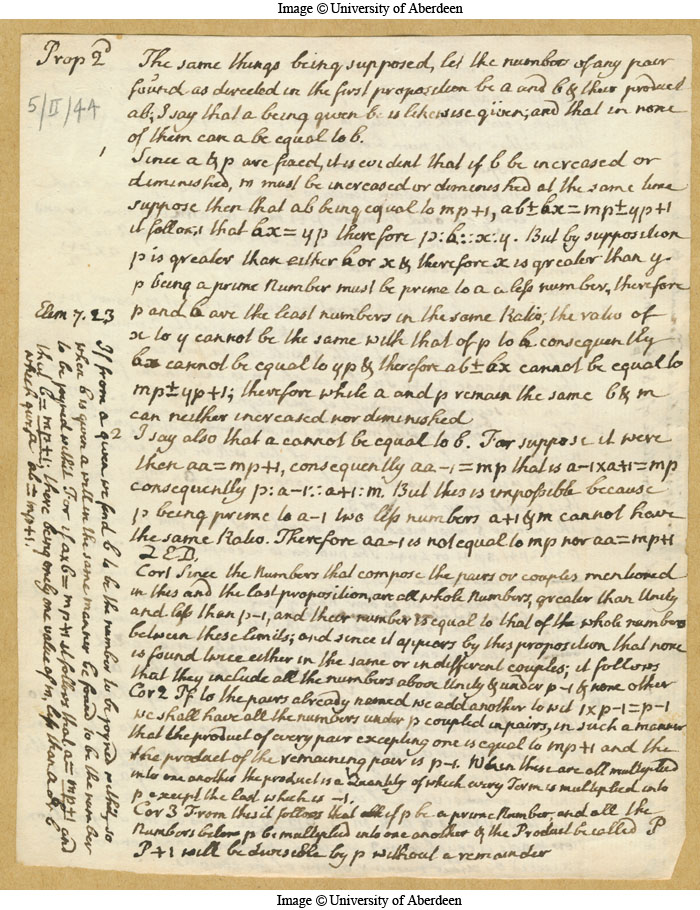 Image © University of Aberdeen
Prop 2d The same things being supposed, let the numbers of any pair
5/II/44
found as directed in the first proposition be a and b & their product
ab; I say that a being given b is likewise given; and that in none
of them can a be equal to b.
1
Since a & p are fixed, it is evident that if b be increased or
diminished, m must be increased or diminished at the same time
suppose then that ab being equal to mp+1, ab±bx=mp±yp+1
it follows that bx=yp therefore p:b::x:y. But by supposition
p is greater than either b or x & therefore x is greater than y.
p being a prime Number must be prime to a a less number, therefore
Elem 7. 23 p and b are the least numbers in the same Ratio; the ratio of
x to y cannot be the same with that of p to b consequently
bx cannot be equal to yp & therefore ab±bx cannot be equal to
mp±yp+1; therefore while a and p remain the same b & m
can neither increased nor diminished
2
I say also that a cannot be equal to b. For suppose it were
then aa=mp+1, consequently aa-1=mp that is a-1xa+1=mp
consequently p:a-1::a+1:m. But this is impossible because
p being prime to a-1 two less numbers a+1 & m cannot have
the same Ratio. Therefore aa-1 is not equal to mp nor aa=mp+1
QED
Cor 1 Since the Numbers that compose the pairs or couples mentioned
in this and the last proposition, are all whole Numbers, greater than Unity
and less than p-1, and their number is equal to that of the whole numbers
between these limits; and since it appears by this proposition that none
is found twice either in the same or in different couples; it follows
that they include all the numbers above Unity & under p-1 & none other
Cor 2 If to the pairs already named we add another to wit 1xp-1=p-1
we shall have all the numbers under p coupled in pairs, in such a manner
that the product of every pair excepting one is equal to mp+1 and the
the product of the remaining pair is p-1. When these are all multiplied
into one another the product is a Quantity of which every Term is multiplied into
p except the last which is -1.
Cor 3 From this it follows that if p be a prime Number, and all the
Numbers below p be multiplied into one another & the Product be called P
P+1 will be divisible by p without a remainder
If from a given we find b to be the number to be joyned with it, so
when b is given a will in the same manner be found to be the number
to be joyned with it For if axb=mp+1 it follows that a=mp+1 and
that b=mp+1; there being only one value of m, less than a or b
which gives ab=mp+1.
Image © University of Aberdeen